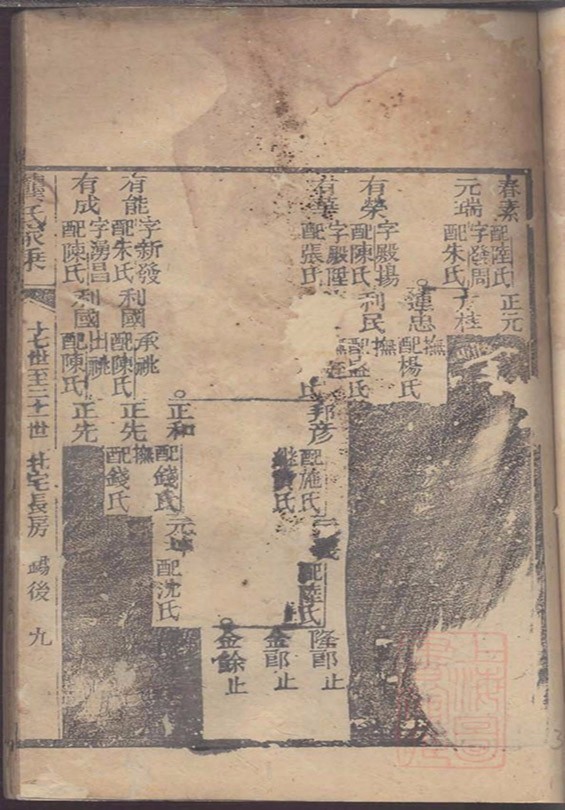 春素 配陸氏 正元
元瑞 字發周 配朱氏
桂
連忠 撫 配楊氏
有榮 字殿揚 配陳氏 利民 撫
有華 字殿陞 配張氏
邦彦 配施氏
配陸氏
隆郎 止
金郎 止
金餘 止
正和 撫 配錢氏
元 配沈氏
有能 字新發 配朱氏 利國 承祧 配陳氏 正先 配錢氏
有成 字湧昌 配陳氏 利國 出祧 配陳氏 正先
龔氏家乘
十七世至二十一世 井宅長房 錫後 九